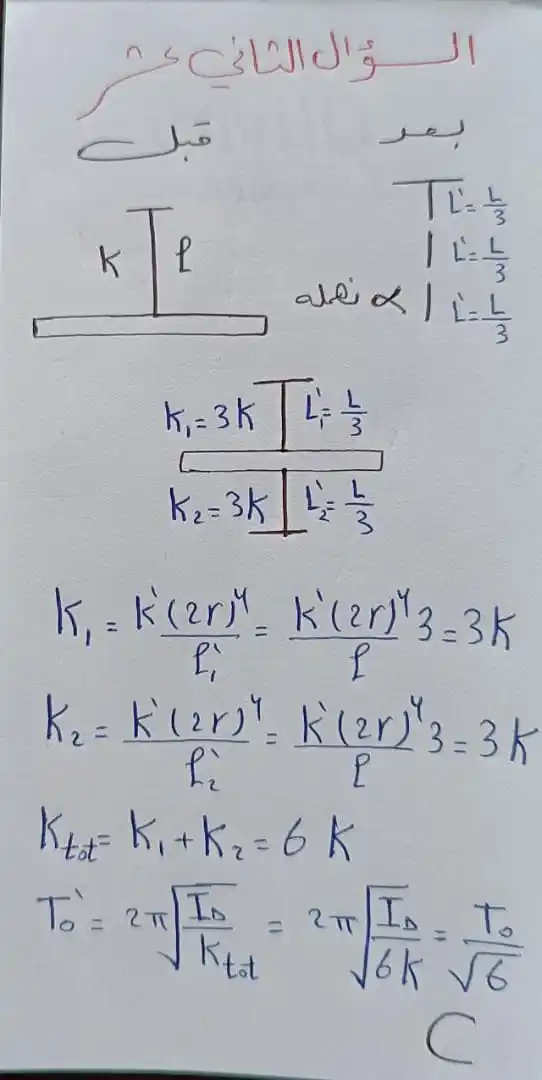 السؤال الثاني عشر
بعد
قبل
K ℓ
L' = L/3
L' = L/3
نهمله α L' = L/3
K₁ = 3K L'₁ = L/3
K₂ = 3K L'₂ = L/3
K₁ = K'(2r)⁴/ℓ'₁ = K'(2r)⁴/ℓ 3 = 3K
K₂ = K'(2r)⁴/ℓ'₂ = K'(2r)⁴/ℓ 3 = 3K
K_tot = K₁ + K₂ = 6 K
T₀' = 2π√(I_Δ/K_tot) = 2π√(I_Δ/6K) = T₀/√6
C